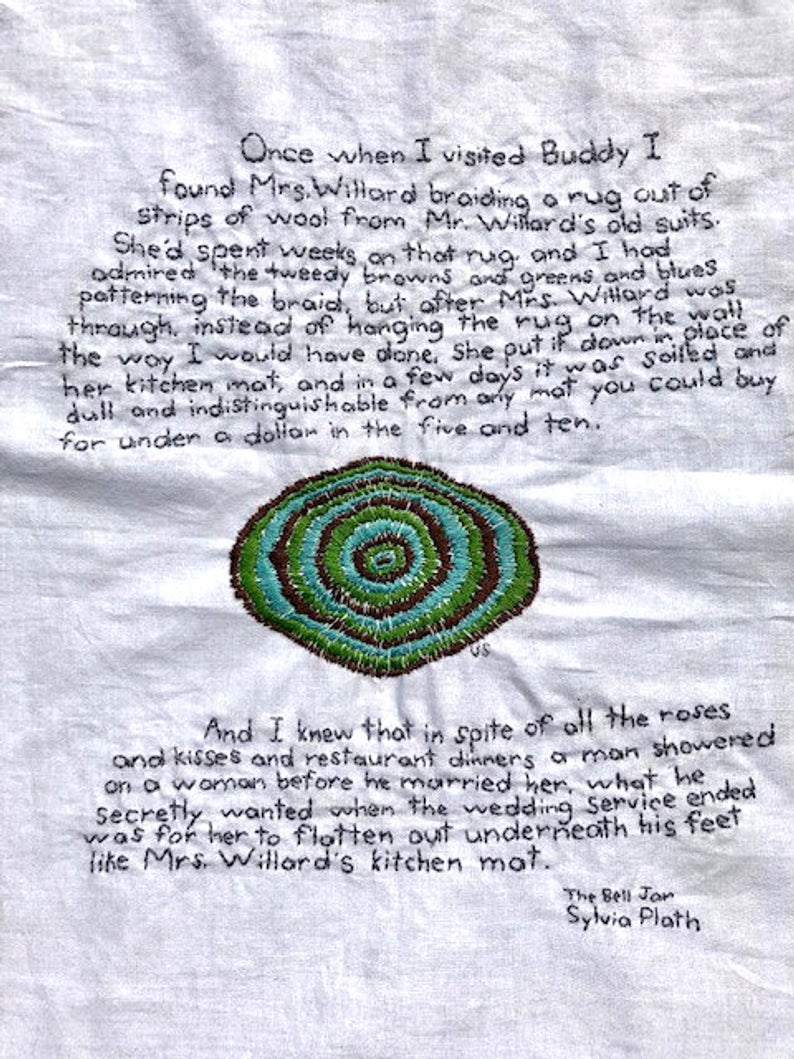 Once when I visited Buddy I
found Mrs. Willard braiding a rug out of
strips of wool from Mr. Willard's old suits.
She'd spent weeks on that rug, and I had
admired the tweedy browns and greens and blues
patterning the braid, but after Mrs. Willard was
through, instead of hanging the rug on the wall
the way I would have done, she put it down in place of
her kitchen mat, and in a few days it was soiled and
dull and indistinguishable from any mat you could buy
for under a dollar in the five and ten.
VS
And I knew that in spite of all the roses
and kisses and restaurant dinners a man showered
on a woman before he married her, what he
secretly wanted when the wedding service ended
was for her to flatten out underneath his feet
like Mrs. Willard's kitchen mat.
The Bell Jar
Sylvia Plath